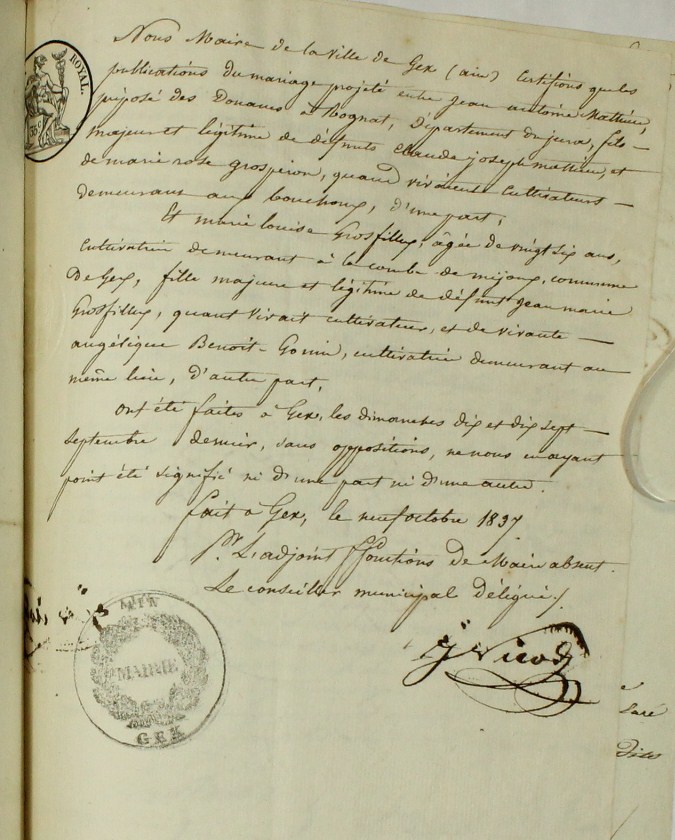 ROYAL.
35 c
Nous Maire de la Ville de Gex (ain) Certifions que les
publications du mariage projeté entre jean antoine Mathieu,
préposé des Douanes à Lognat, Département du jura, fils
majeur et légitime de défunts Claude joseph mathieu, et
de marie rose grosperon, quand vivaient Cultivateurs
demeurant aux bouchoux, d'une part,
Et marie louise Grosfilley, âgée de vingt six ans,
Cultivatrice demeurant à la combe de mijoux, commune
De Gex, fille majeure et légitime de défunt jean marie
Grosfilley, quant vivait cultivateur, et de vivante
angélique Benoit-Gonin, cultivatrice demeurant au
même lieu, d'autre part,
ont été faites à Gex, les dimanches dix et dix sept
septembre dernier, sans oppositions, ne nous en ayant
point été signifié ni d'une part ni d'une autre.
fait à Gex, le neuf octobre 1837
pr. L'adjoint ffonctions de Maire absent.
Le conseiller municipal Délégué./
AIN
MAIRIE
GEX